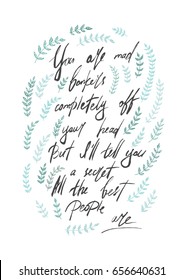 You are mad
bonkers
completely off
your head
But I'll tell you
a secret
All the best
People
are
shutterstock.com · 656640631